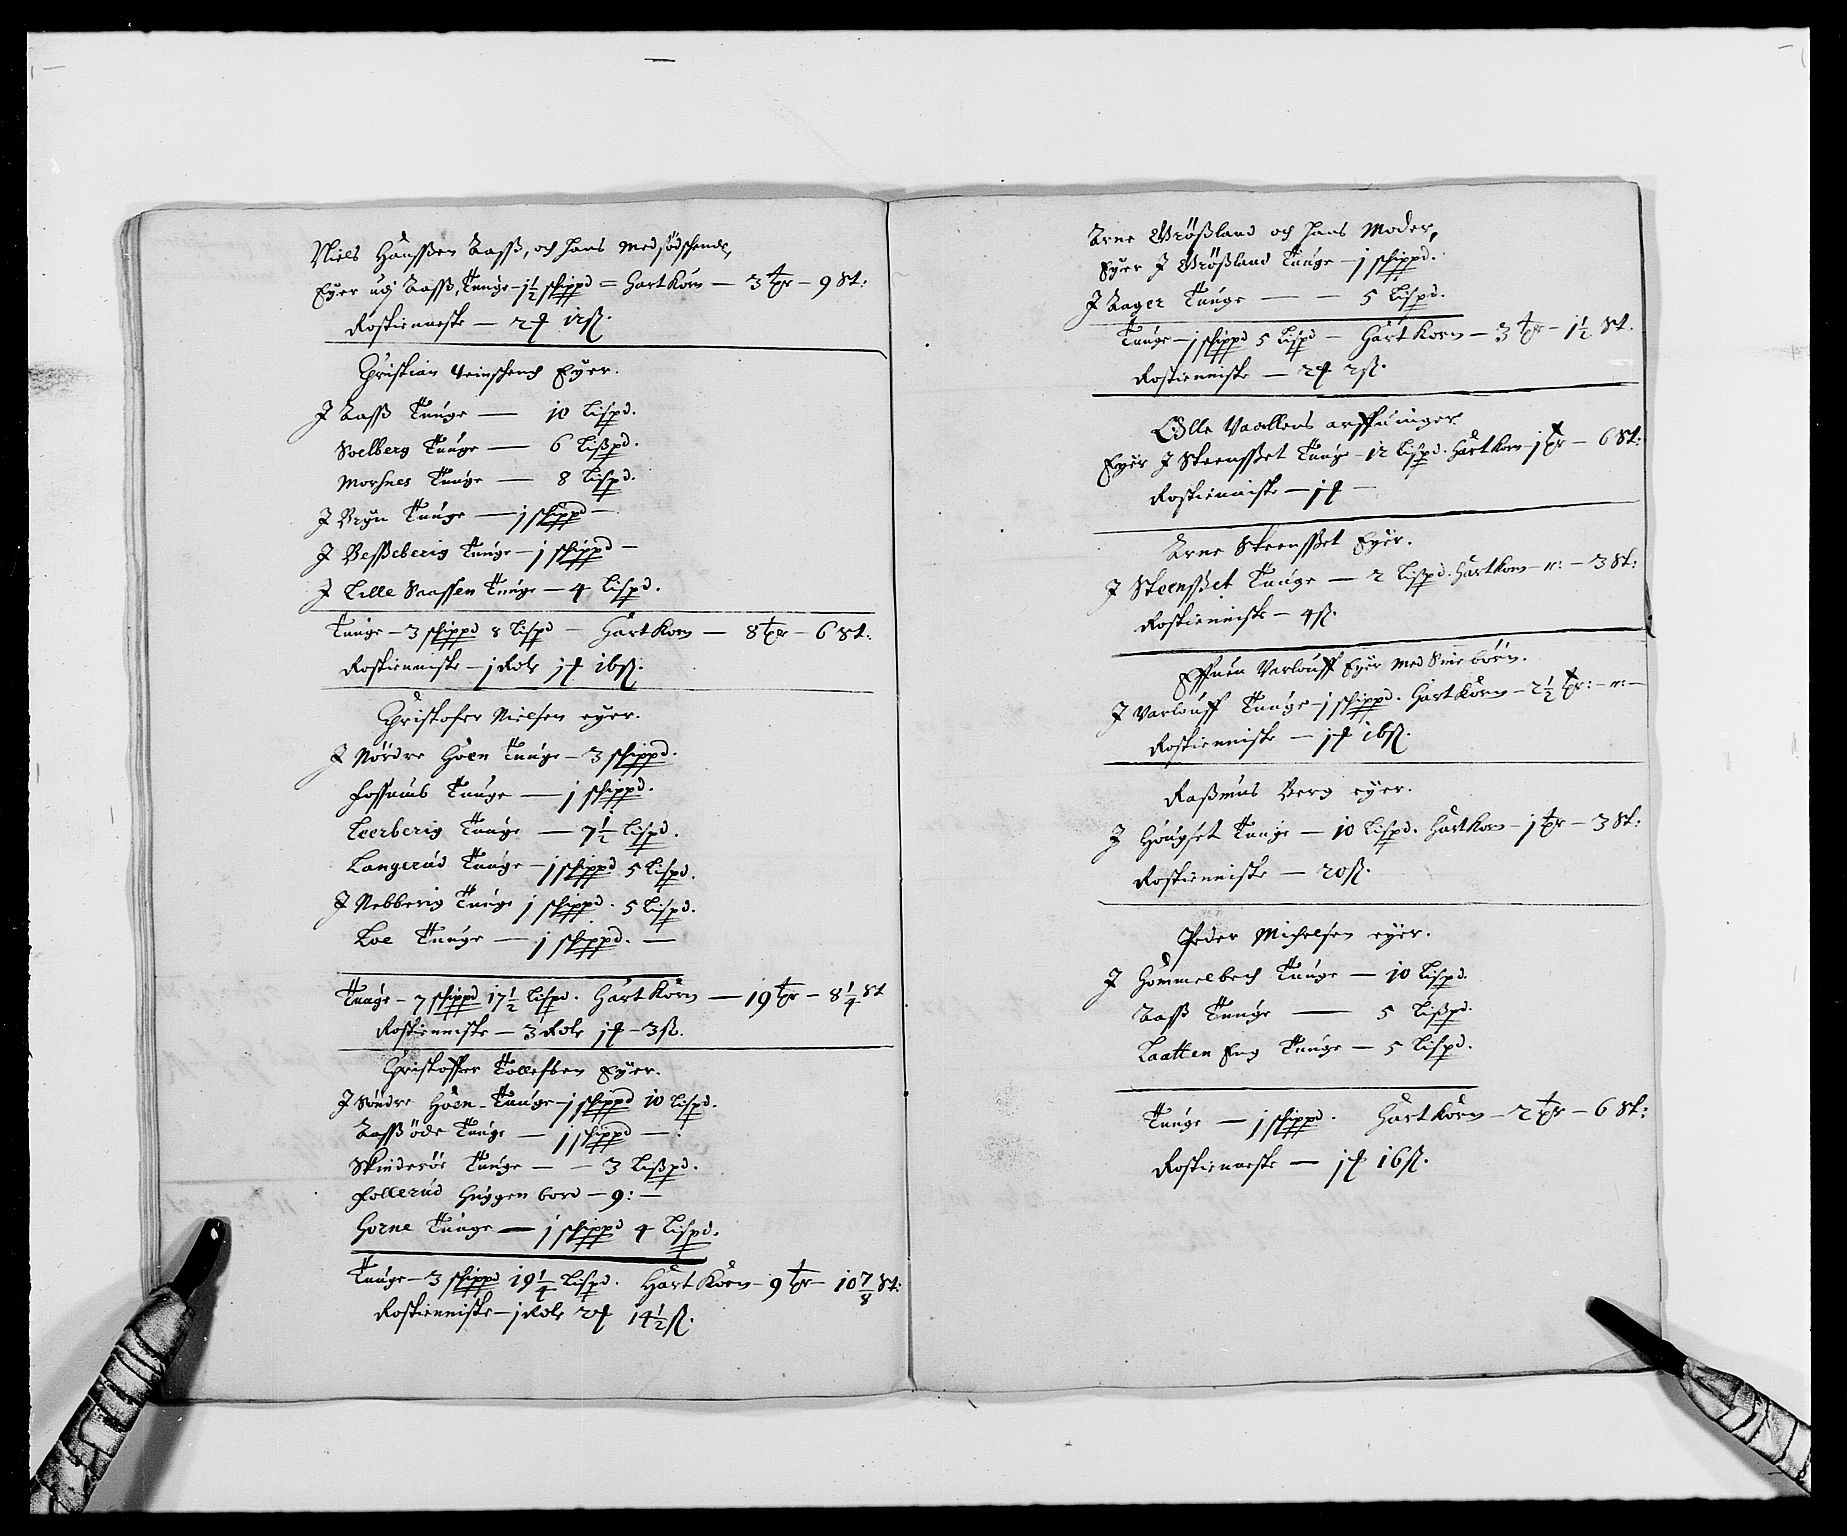 Niels Hanssen Aass, och hans medsødschende,
Eyer udj Aass, Tunge – 1½ schippd = Hart Korn – 3 tpr – 9 St:
Rostienneste – 2 12 ß.
Christian Eyer.
J Aass Tunge — 10 Lispd.
Soelberg Tunge — 6 Lispd.
Morsnes Tunge — 8 Lispd.
J Bryn Tunge — j schippd –
J Besseberig Tunge – j schippd –
J Lille Tunge – 4 Lispd.
Tunge – 3 schippd 8 Lispd – Hart Korn – 8 tpr – 6 St:
Rostienniste – j Rdr j 16 ß.
Christofer Nielsen eyer.
J Nördre Höen Tunge – 3 schippd.
Fossumb Tunge — j schippd.
Leerberig Tunge — 7½ Lispd.
Langerud Tunge – j schippd 5 Lispd.
J Nebberig Tunge j schippd. 5 Lispd.
Loe Tunge — j schippd. —
Tunge – 7 schippd 17½ Lispd. Hart Korn — 19 tpr – 8¼ St
Rostienniste – 3 Rdr j – 3 ß.
Christoffer Tollefsen Eyer.
J Söndre Höen Tunge – j schippd 10 Lispd.
Tunge — j schippd — .
Skinderöe Tunge — – 3 Lispd.
Follerud Huggen bord – 9: –
Horne Tunge — j schippd 4 Lispd.
Tunge – 3 schippd 19¼ Lispd. Hart Korn – 9 tpr – 10⅞ St:
Rostienniste – j Rdr 2 14½ ß.
Arne Wrössland och hans Moder,
Eyer J Wrössland Tunge – j schippd.
J Ager Tunge — – 5 Lispd.
Tunge – j schippd 5 Lispd – Hart Korn – 3 tpr – 1½ St.
Rostienniste – 2 2 ß.
Olle Vaallens arffuinger
Eyer J Steensset Tunge – 12 Lispd. Hart Korn – j tpr – 6 St:
Rostienniste – j –
Arne Steensset Eyer.
J Steensset Tunge – 2 Lispd. Hart Korn – n: – 3 St:
Rostienniste – 4 ß.
Effuen Varlouff Eyer med Sine börn.
J Varlouff Tunge – j schippd. Hart Korn – 2½ tpr: – n: –
Rostienniste – j 16 ß.
Rasmus Berg eyer.
J Hougset Tunge – 10 Lispd. Hart Korn – j tpr – 3 St:
Rostienniste – 20 ß.
Peder Michelsen eyer.
J Hommelbech Tunge – 10 Lispd.
Aass Tunge — 5 Lispd.
Laatten Eng Tunge – 5 Lispd.
Tunge – j schippd. Hart Korn – 2 tpr – 6 St:
Rostienneste – j 16 ß.